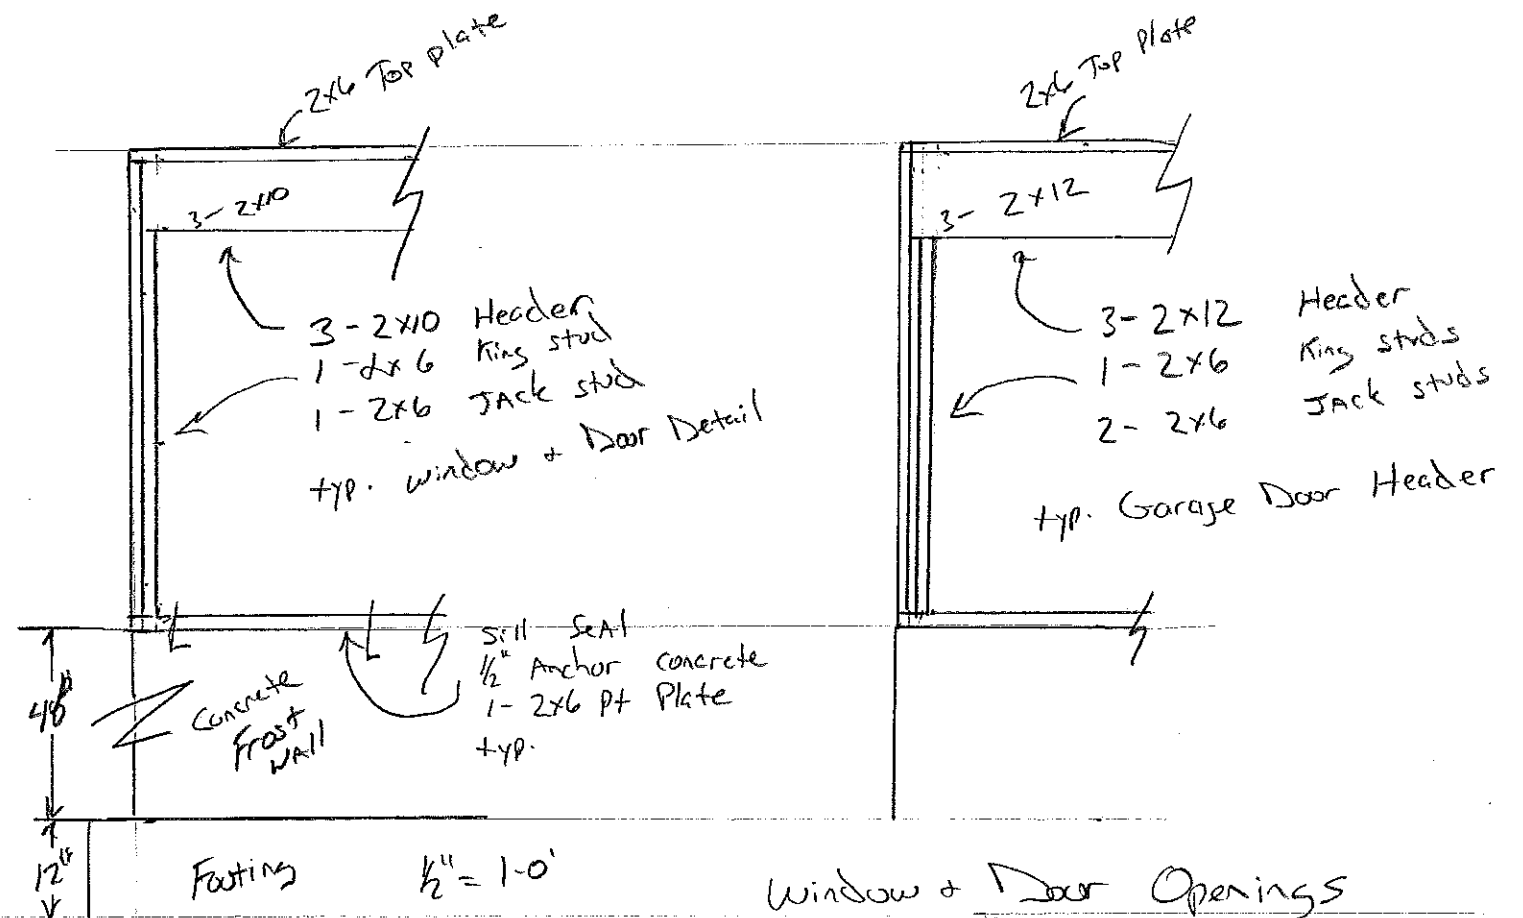 2x6 Top plate
3- 2x10
3-2x10 Header
1-2x6 King stud
1-2x6 JAck stud
typ. window + Door Detail
2x6 Top Plate
3- 2x12
3-2x12 Header
1-2x6 King studs
2- 2x6 JAck studs
typ. Garage Door Header
48"
Concrete
Frost
WAll
Sill SeAl
1/2" Anchor concrete
1-2x6 Pt Plate
typ.
12"
Footing
1/2"= 1-0'
Window + Door Openings